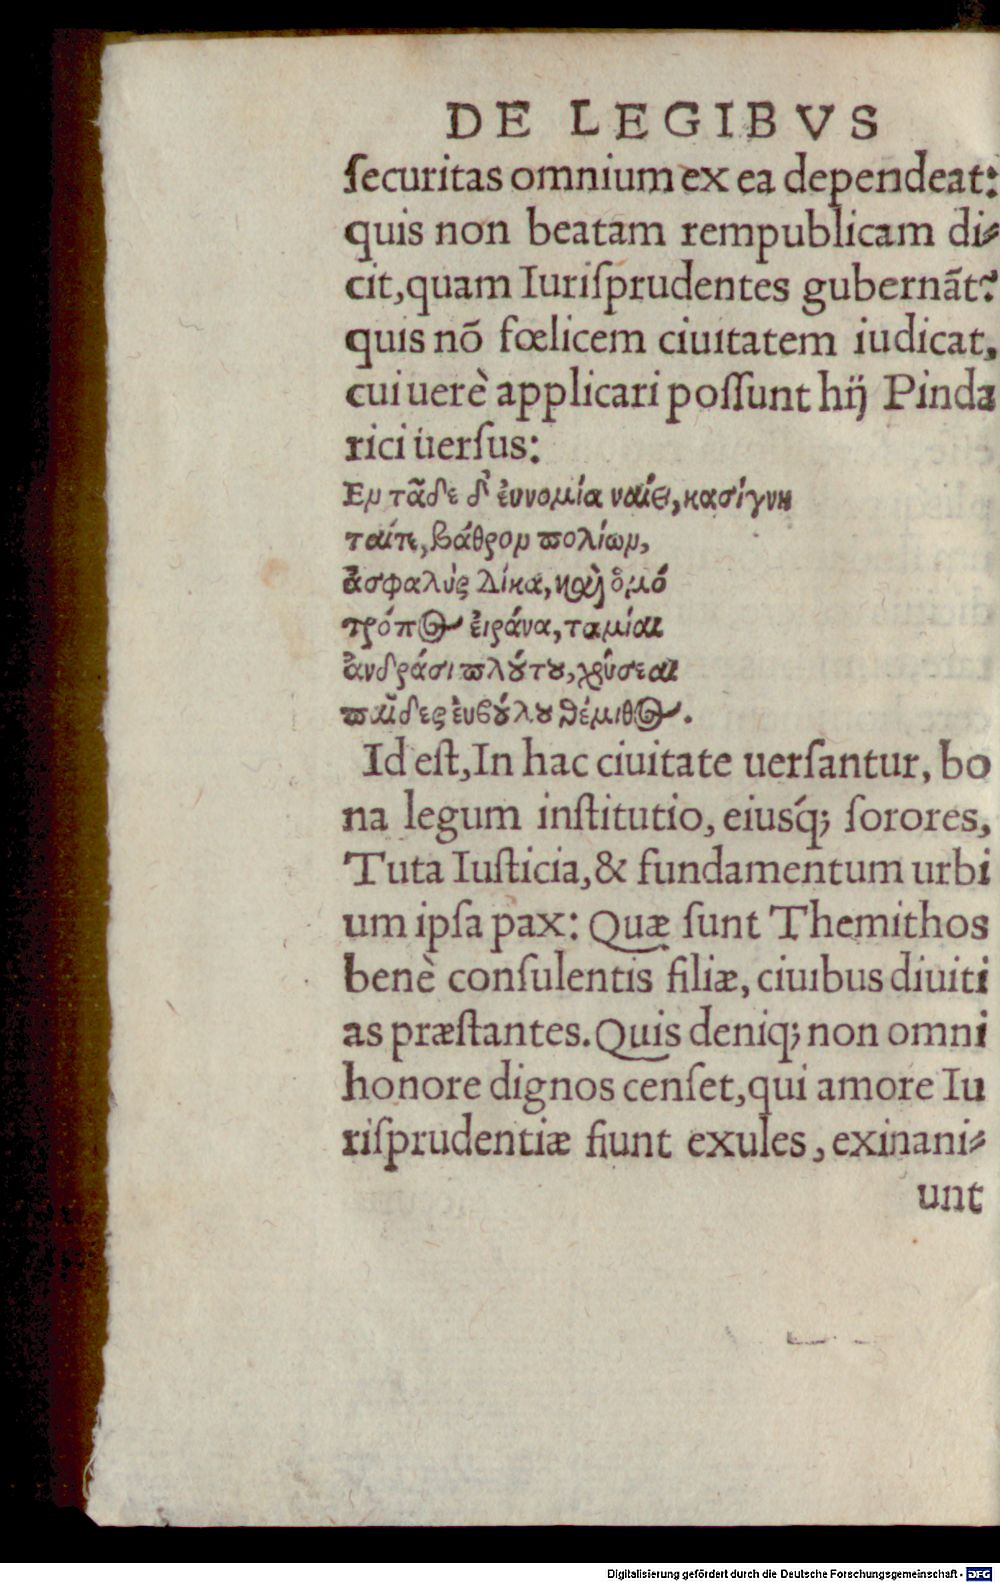 DE LEGIBVS
ſecuritas omnium ex ea dependeat:
quis non beatam rempublicam di⸗
cit,quam Iuriſprudentes gubernãt?
quis nõ fœlicem ciuitatem iudicat,
cui uerè applicari poſſunt hij Pinda
rici uerſus:
Ἐν τᾶδε δ' ἐυνομία ναίει, κασίγνη
ταίτε, βάθρον πολίων,
ἀσφαλὴς Δίκα, καὶ ὁμό
τροπος ἐιράνα, ταμίαι
ἀνδράσι πλούτου, χρύσεαι
παῖδες ἐυβούλου Θέμιθος.
Id eſt, In hac ciuitate uerſantur, bo
na legum inſtitutio, eiusq́; ſorores,
Tuta Iuſticia, & fundamentum urbi
um ipſa pax: Quæ ſunt Themithos
benè conſulentis filiæ, ciuibus diuiti
as præſtantes. Quis deniq; non omni
honore dignos cenſet, qui amore Iu
riſprudentiæ fiunt exules, exinani⸗
unt
Digitalisierung gefördert durch die Deutsche Forschungsgemeinschaft - DFG